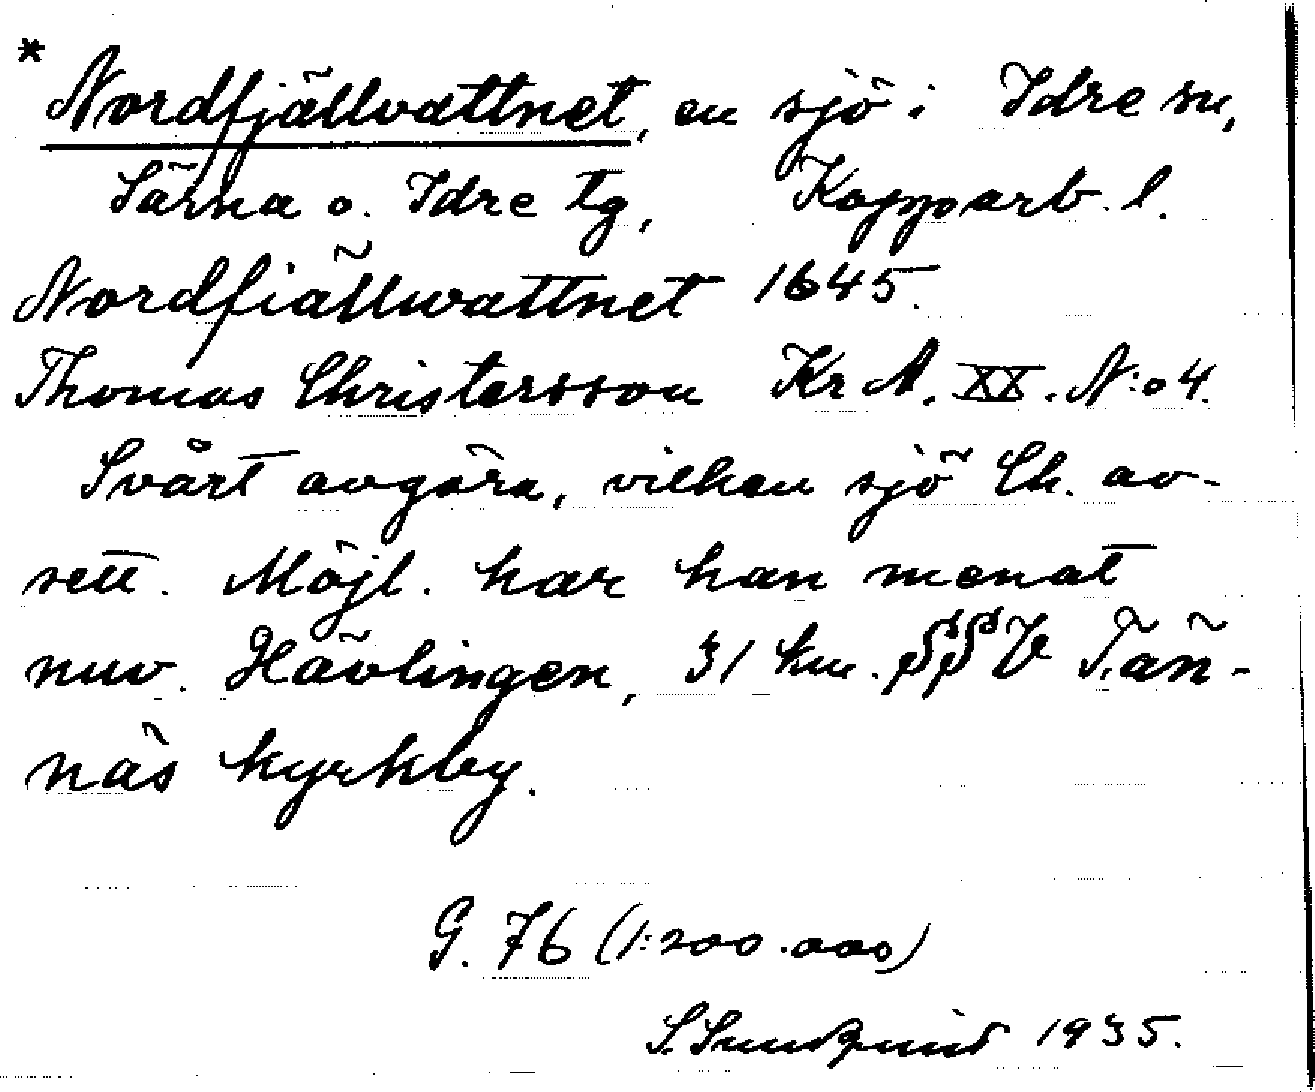 * Nordfjällvattnet, en sjö i Idre sn,
Särna o. Idre tg, Kopparb. l.
Nordfiällwattnet 1645.
Thomas Christersson KrA. XX. N:o 4.
Svårt avgöra, vilken sjö Ch. av-
sett. Möjl. har han menat
nuv. Hävlingen, 31 km. SSV Tän-
näs kyrkby.
G. 76 (1:200.000)
S. Sundquist 1935.